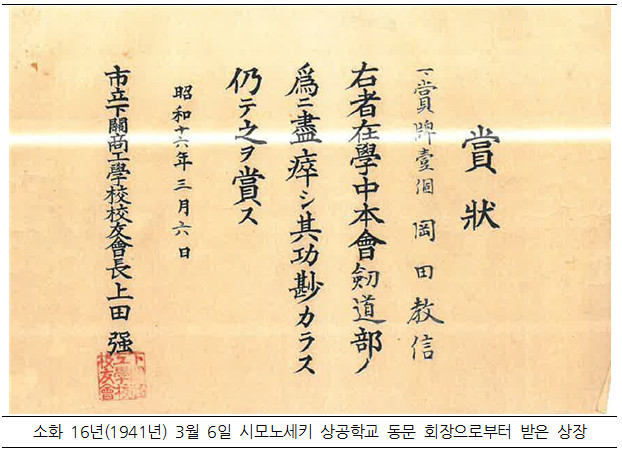 賞狀
一、賞牌壹個 岡田教信
右者在學中本會劍道部ノ
爲ニ盡瘁シ其功尠カラス
仍テ之ヲ賞ス
昭和十六年三月六日
市立下關商工學校校友會長上田强
소화 16년(1941년) 3월 6일 시모노세키 상공학교 동문 회장으로부터 받은 상장